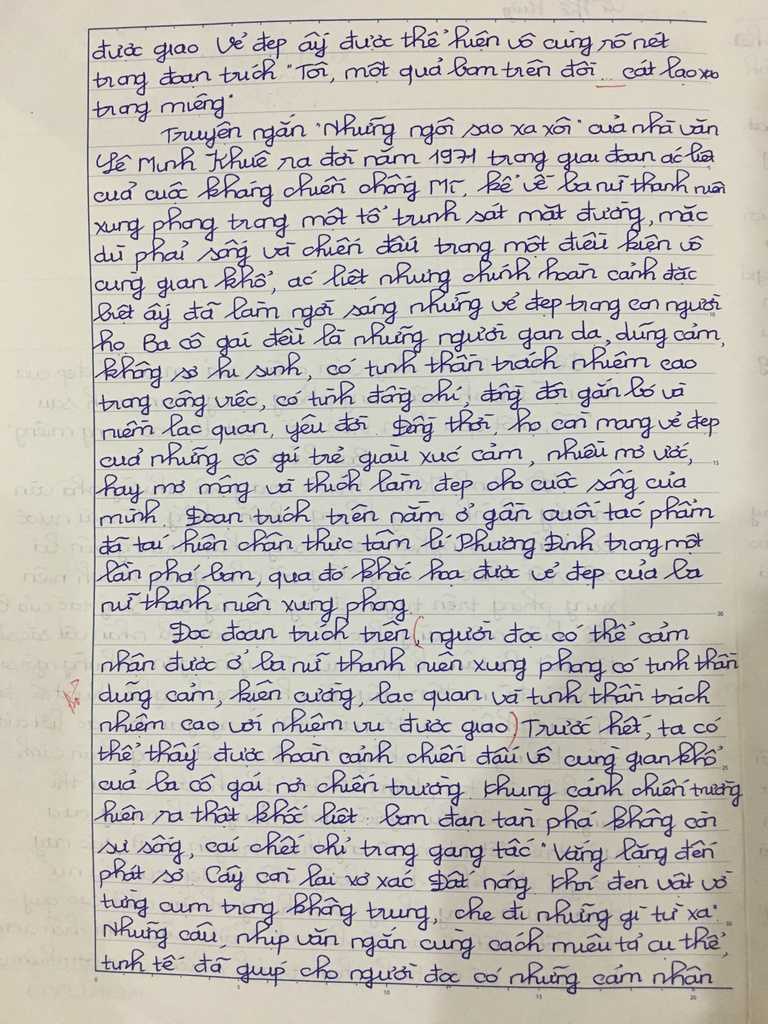 được giao. Vẻ đẹp ấy được thể hiện vô cùng rõ nét
trong đoạn trích "Tôi, một quả bom trên đồi... cát lạo xạo
trong miệng"
Truyện ngắn "Những ngôi sao xa xôi" của nhà văn
Lê Minh Khuê ra đời năm 1971 trong giai đoạn ác liệt
của cuộc kháng chiến chống Mĩ, kể về ba nữ thanh niên
xung phong trong một tổ trinh sát mặt đường, mặc
dù phải sống và chiến đấu trong một điều kiện vô
cùng gian khổ, ác liệt nhưng chính hoàn cảnh đặc
biệt ấy đã làm ngời sáng những vẻ đẹp trong con người
họ. Ba cô gái đều là những người gan dạ, dũng cảm,
không sợ hi sinh, có tinh thần trách nhiệm cao
trong công việc, có tình đồng chí, đồng đội gắn bó và
niềm lạc quan, yêu đời. Đồng thời, họ còn mang vẻ đẹp
của những cô gái trẻ giàu xúc cảm, nhiều mơ ước,
hay mơ mộng và thích làm đẹp cho cuộc sống của
mình. Đoạn trích trên nằm ở gần cuối tác phẩm
đã tái hiện chân thực tâm lí Phương Định trong một
lần phá bom, qua đó khắc họa được vẻ đẹp của ba
nữ thanh niên xung phong.
Đọc đoạn trích trên, (người đọc có thể cảm
nhận được ở ba nữ thanh niên xung phong có tinh thần
dũng cảm, kiên cường, lạc quan và tinh thần trách
nhiệm cao với nhiệm vụ được giao) Trước hết, ta có
thể thấy được hoàn cảnh chiến đấu vô cùng gian khổ
của ba cô gái nơi chiến trường. Khung cảnh chiến trường
hiện ra thật khốc liệt: bom đạn tàn phá không còn
sự sống, cái chết chỉ trong gang tấc "Vắng lặng đến
phát sợ. Cây còn lại xơ xác. Đất nóng. Khói đen vật vờ
từng cụm trong không trung, che đi những gì từ xa".
Những câu nhịp văn ngắn cùng cách miêu tả cụ thể,
tinh tế đã giúp cho người đọc có những cảm nhận